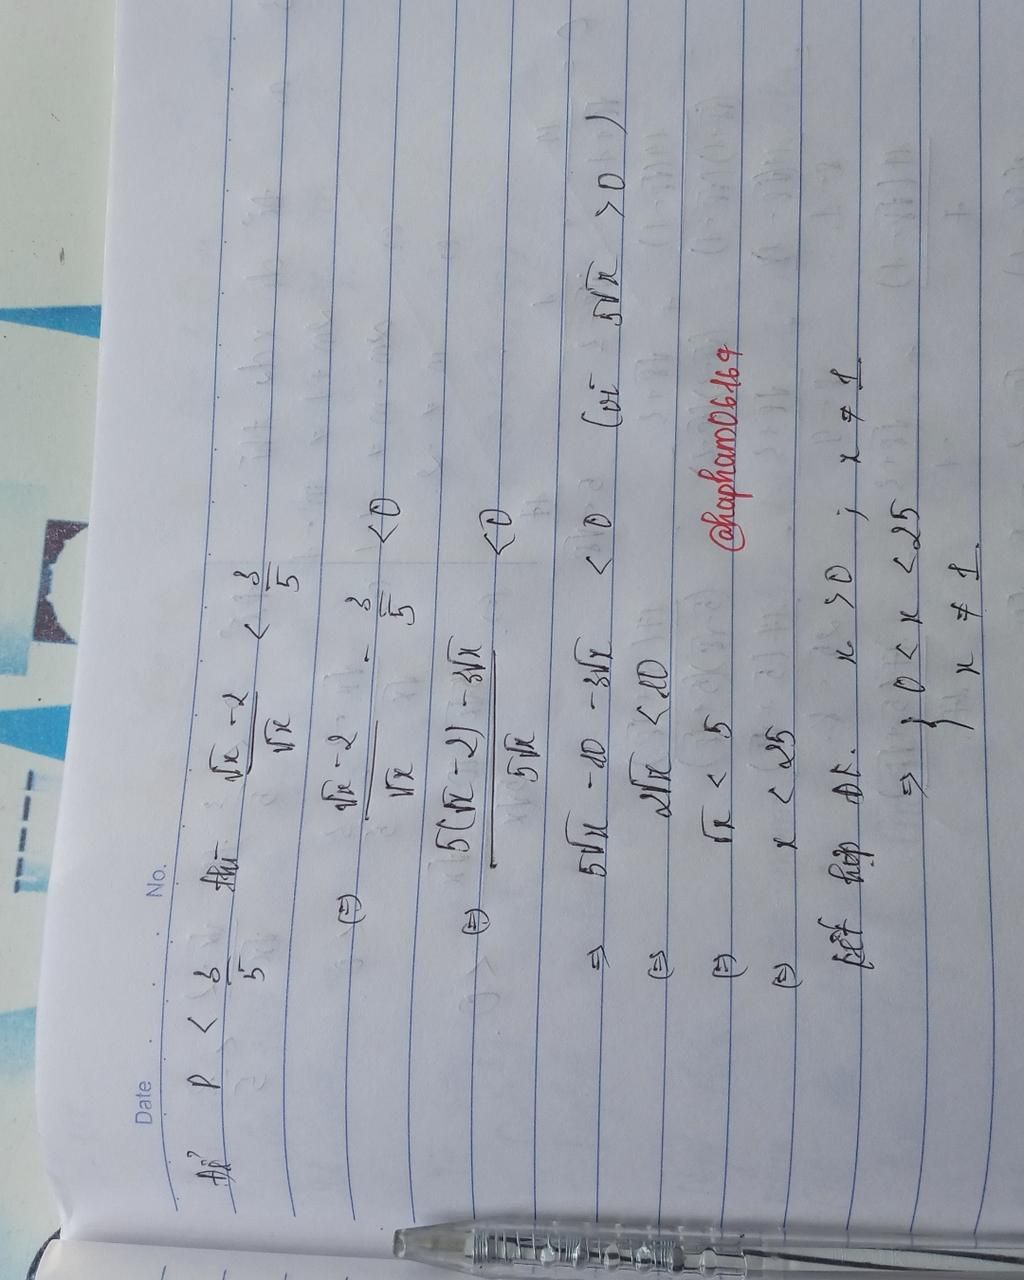 Date No.
Để P < 3/5 thì (√x - 2)/√x < 3/5
(=) (√x - 2)/√x - 3/5 < 0
(=) (5(√x - 2) - 3√x)/(5√x) < 0
=> 5√x - 10 - 3√x < 0 (vì 5√x > 0)
(=) 2√x < 10
(=) √x < 5
@hapham06164
(=) x < 25
kết hợp ĐK. x > 0 ; x ≠ 1
=> { 0 < x < 25
x ≠ 1.